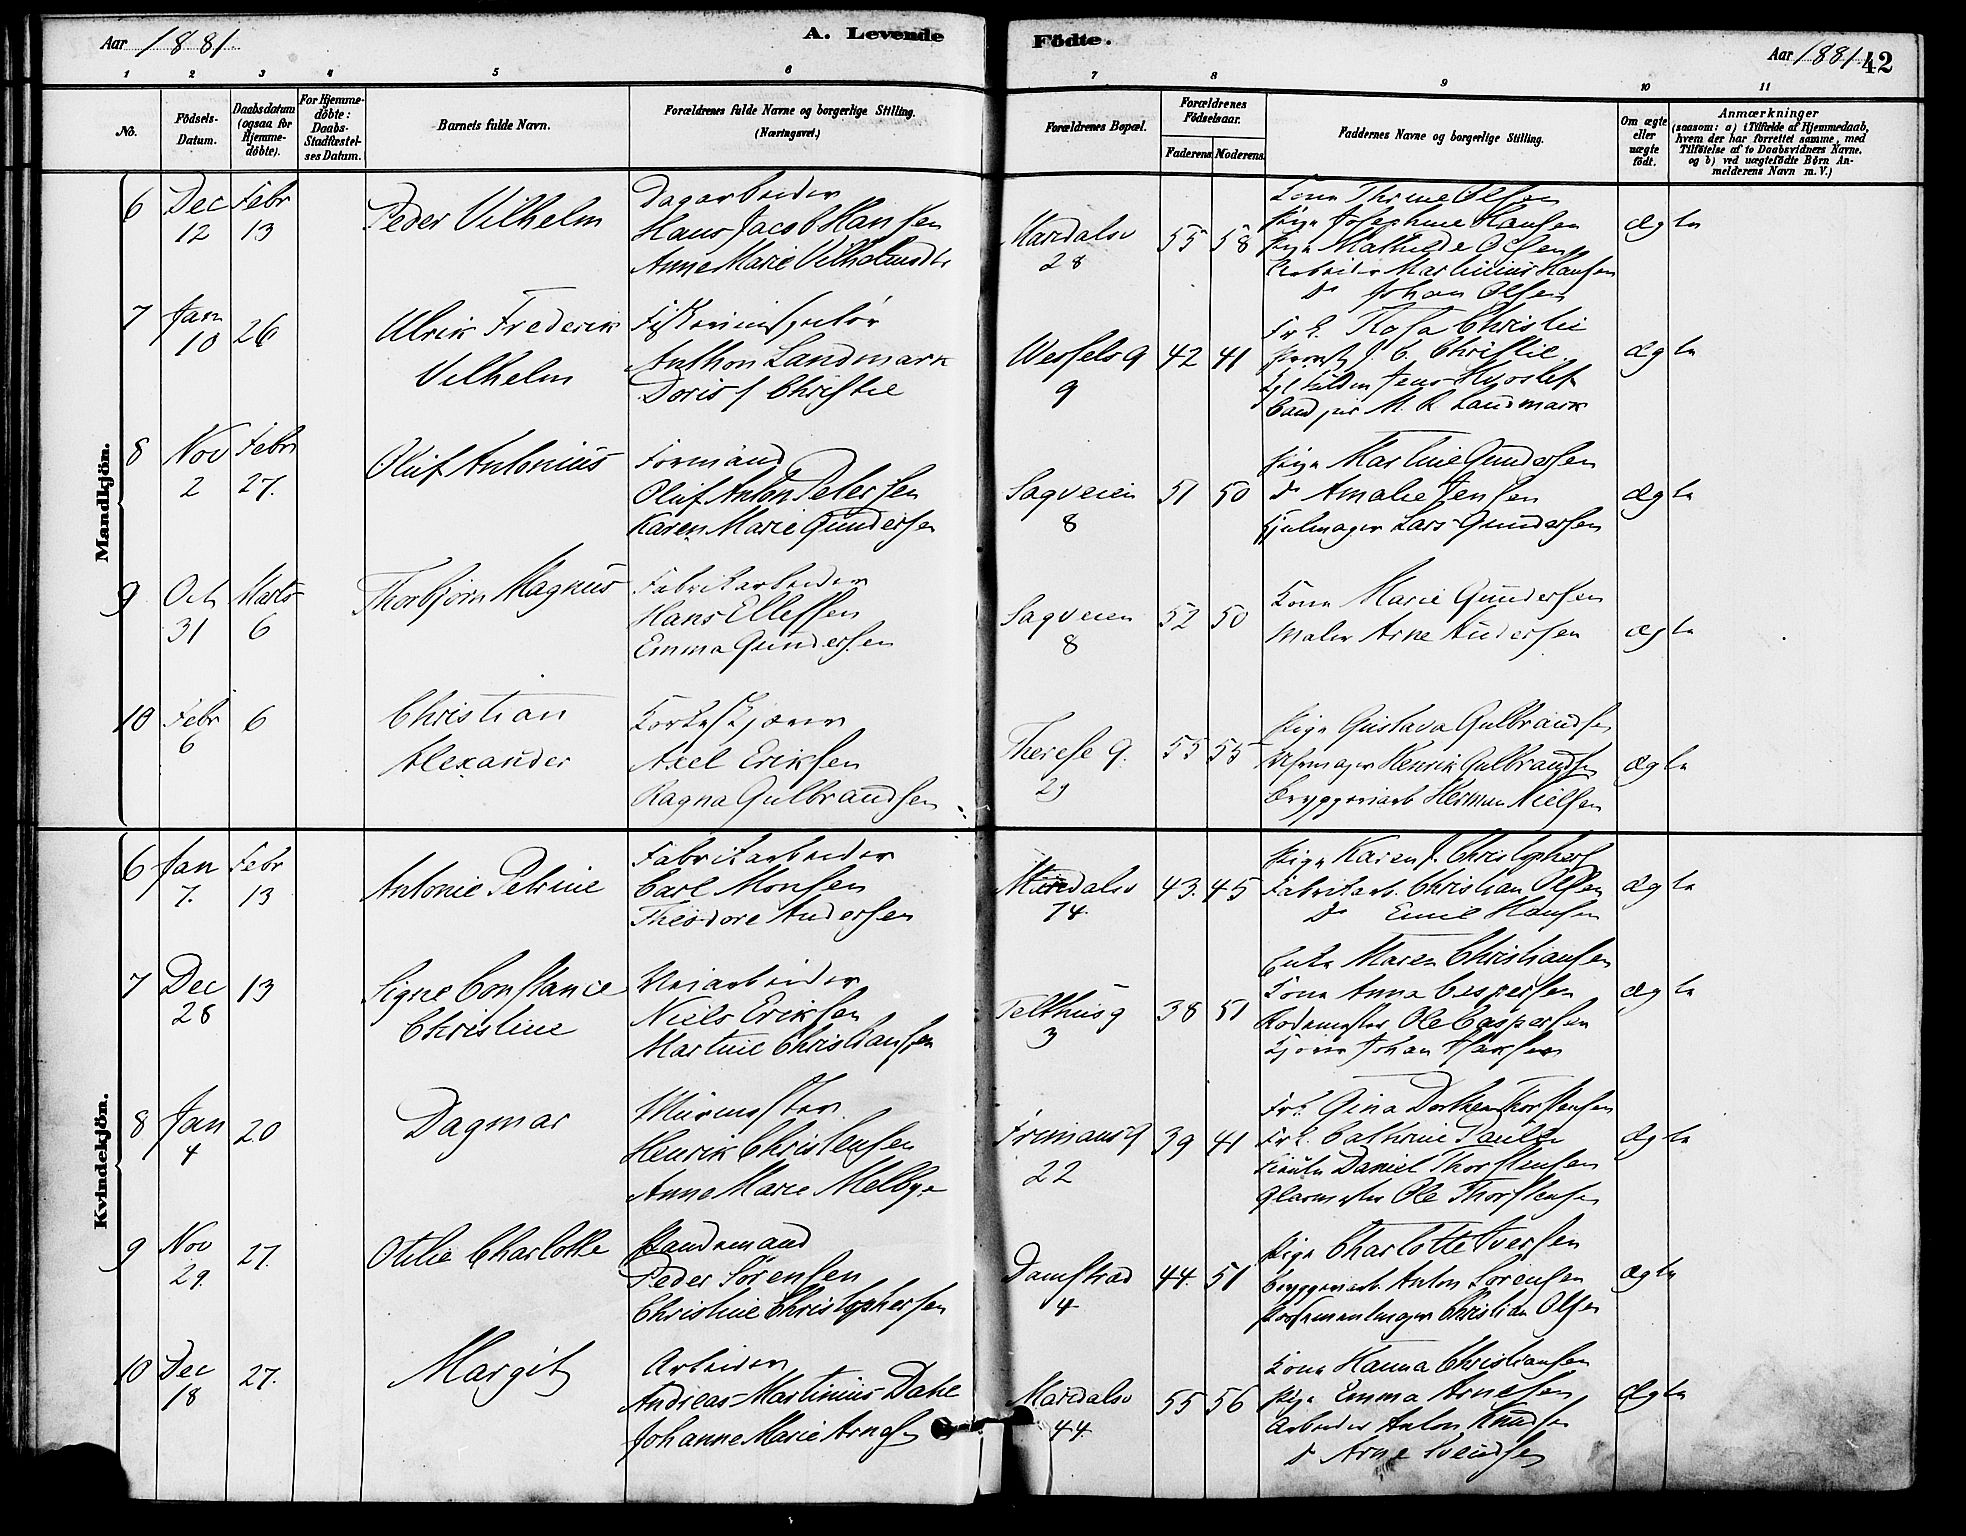 Aar 1881. A. Levende Födte. Aar 1881. 42
1 2 3 4 5 6 7 8 9 10 11
No.
Födsels-
Datum.
Daabsdatum
(ogsaa for
Hjemme-
döbte).
For Hjemme-
döbte:
Daabs-
Stadfæstel-
ses Datum.
Barnets fulde Navn.
Forældrenes fulde Navne og borgerlige Stilling.
(Næringsvei.)
Forældrenes Bopæl.
Forældrenes
Födselsaar.
Faderens Moderens
Faddernes Navne og borgerlige Stilling.
Om ægte
eller
uægte
födt.
Anmærkninger
(saasom: a) i Tilfælde af Hjemmedaab,
hvem der har forrettet samme, med
Tilföielse af to Daabsvidners Navne.
og b) ved uægtefödte Börn An-
melderens Navn m. V.)
Mandkjön.
6
Dec
12
Febr
13
Peder Vilhelm
Dagarbeider
Hans Jacob Hansen
Anne Marie
Maridalsv
28
55 58
Kone Thrine Olsen
Pige Josephine Hansen
Pige Mathilde Olsen
Arbeider Martinius Hansen
Do Johan Olsen
ægte
7
Jan
10
26
Ulrik Frederik
Vilhelm
Fiskeriinspektør
Anthon Landmark
Doris Christie
Wesselsg
9
42 41
Frk. Christie
Provst J. C. Christie
Jens
Cand jur M. R. Landmark
ægte
8
Nov
2
Febr
27.
Oluf Antonius
Formand
Oluf Anton Petersen
Karen Marie Gundersen
Sagveien
8
51 50
Pige Martine Gundersen
Do Amalie Jensen
Hjulmager Lars Gundersen
ægte
9
Oct
31
Marts
6
Thorbjørn Magnus
Fabrikarbeider
Hans Ellefsen
Emma Gundersen
Sagveien
8
52 50
Kone Marie Gundersen
Maler Arne Andersen
ægte
10
Febr
6
6
Christian
Alexander
Korkeskjærer
Axel Eriksen
Ragna Gulbrandsen
Therese g.
29
55 55
Pige Gustava Gulbrandsen
Henrik Gulbrandsen
Bryggeriarb Herman Nielsen
ægte
Kvindekjön.
6
Jan
7.
Febr
13
Antonie Petrine
Fabrikarbeider
Carl Monsen
Theodore Andersen
Maridalsv
74.
43. 45
Pige Karen J. Christophers
Fabrikarb. Christian Olsen
Do Emil Hansen
ægte
7
Dec
28
13
Signe Constance
Christine
Veiarbeider
Niels Eriksen
Martine Christiansen
Telthusg
3
38 51
Enke Maren Christiansen
Kone Anna Caspersen
Rodemester Ole Caspersen
Kjører Johan
ægte
8
Jan
4
20
Dagmar
Murmester
Henrik Christensen
Anne Marie Melbye
Frimansg
22
39 41
Frk. Gina Dorthea Thorstensen
Frk. Cathrine Paulli
Daniel Thorstensen
Glarmester Ole Thorstensen
ægte
9
Nov
29.
27.
Otilie Charlotte
Sandemand
Peder Sørensen
Christine Christophersen
Damstræd
4
44. 51
Pige Charlotte Iversen
Bryggeriarb. Anton Sørensen
Portemonmager Christian Olsen
ægte
10
Dec
18
27.
Margit
Arbeider
Andreas Martinius Dahl
Johanne Marie Arnesen
Maridalsv
44.
55 56
Kone Hanna Christiansen
Pige Emma Arnesen
Arbeider Anton Knudsen
Do Arne Svendsen
ægte